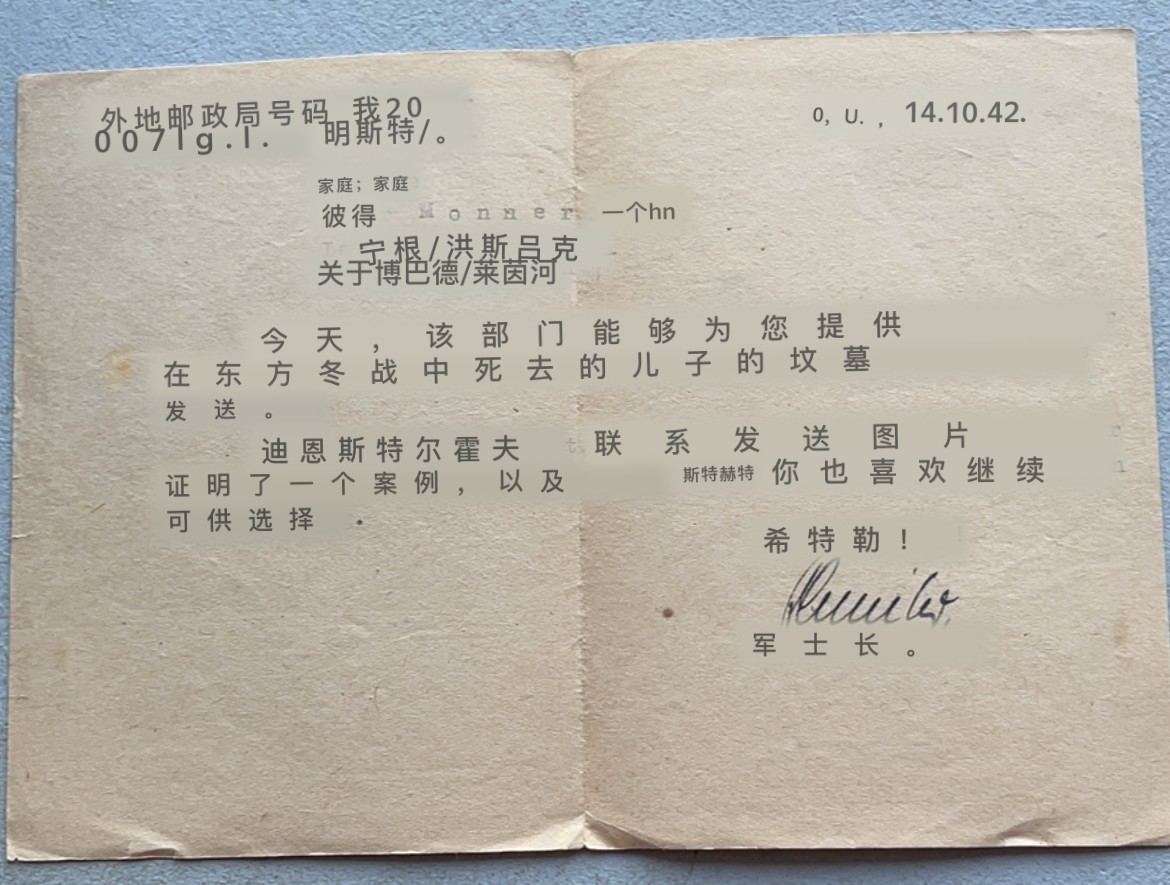 外地邮政局号码 我20
0, U. , 14.10.42.
007lg.l. 明斯特/。
家庭；家庭
彼得 Monner 一个hn
宁根/洪斯吕克
关于博巴德/莱茵河
今天，该部门能够为您提供
在东方冬战中死去的儿子的坟墓
发送。
迪恩斯特尔霍夫 t. 联系发送图片
证明了一个案例，以及 斯特赫特 你也喜欢继续
可供选择 .
希特勒！
军士长。